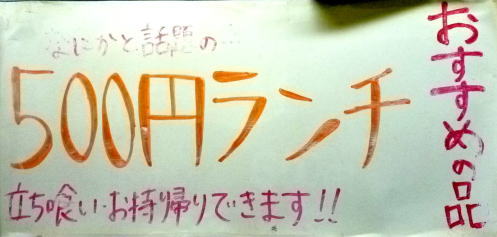 なにかと話題の…
500円ランチ
立ち喰い・お持帰りできます!!
おすすめの品